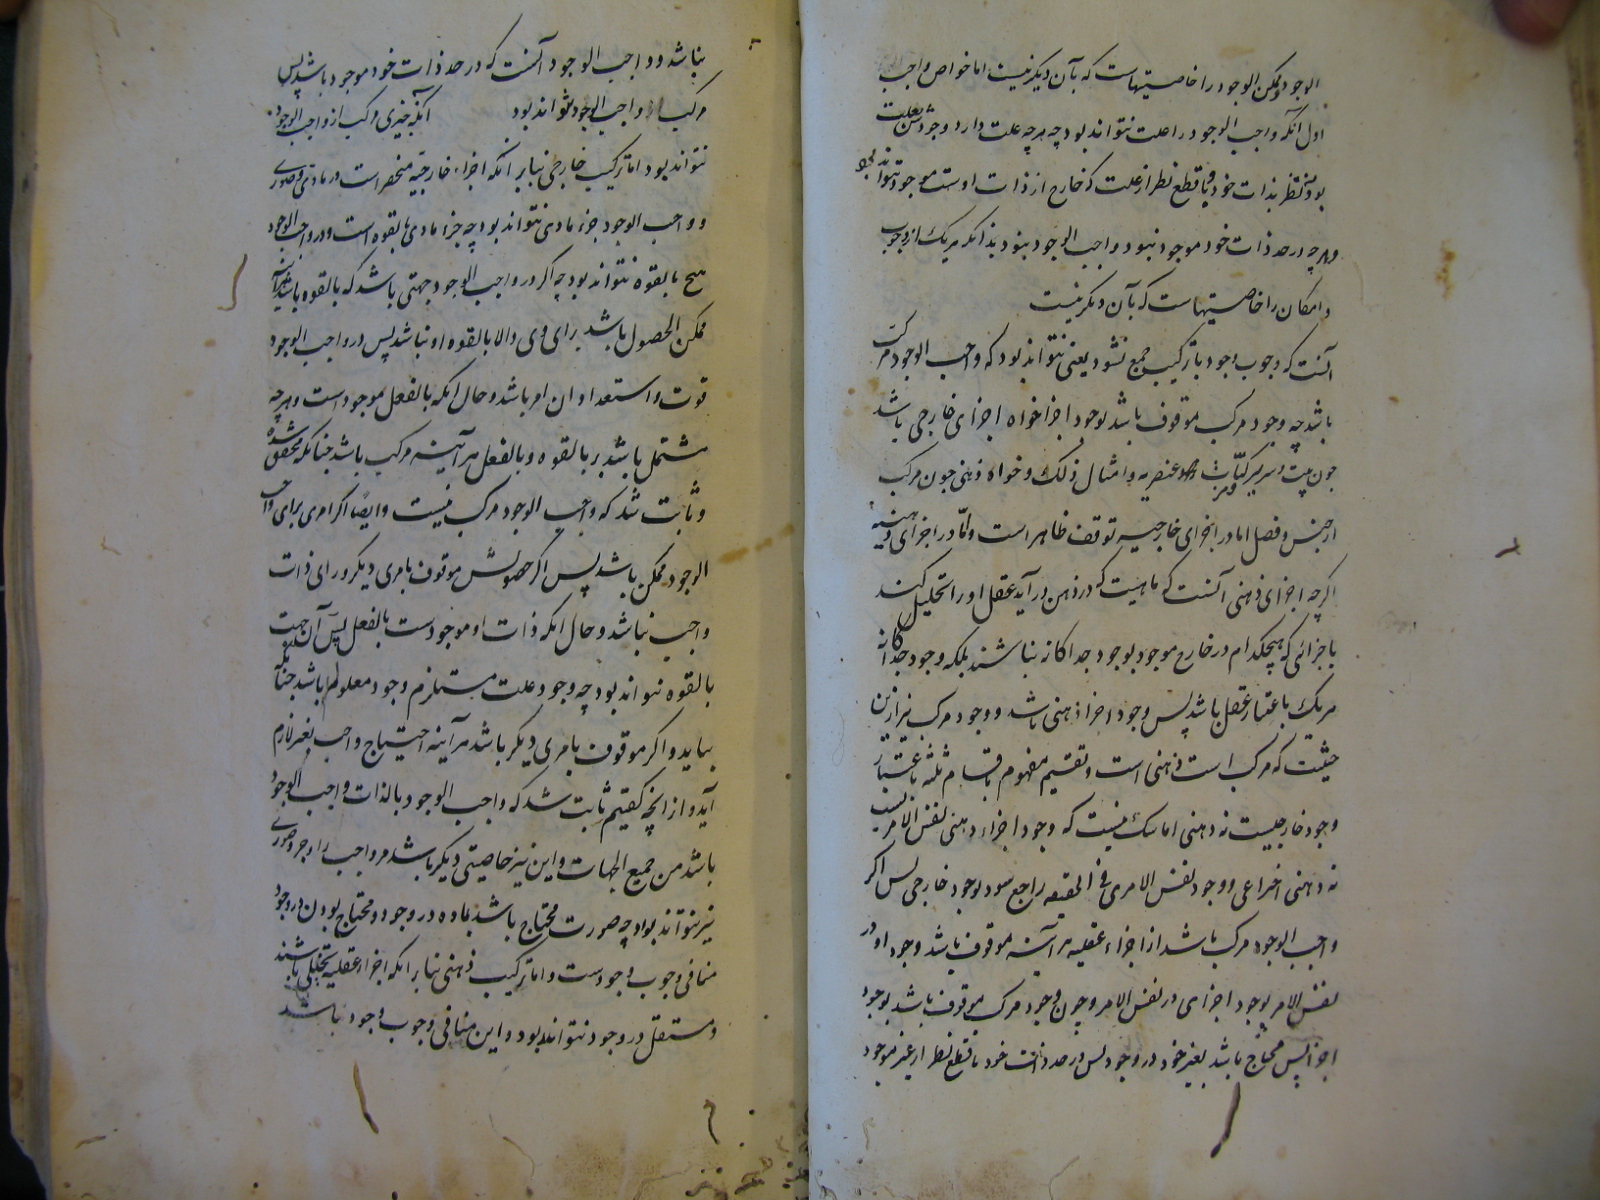 الوجود و ممکن الوجود را خاصیتهاست که بآن دیگر نیست اما خواص واجب
اول آنکه واجب الوجود را علت نتواند بود چه هرچه علت دارد وجودش بعلت
بود بنظر بذات خود و با قطع نظر از علت که خارج از ذات اوست موجود نتواند بود
و هرچه در حد ذات خود موجود نبود واجب الوجود نبود بدانکه هریک از وجوب
و امکان را خاصیتهاست که بآن دیگر نیست
آنست که وجوب وجود با ترکیب جمع نشود یعنی نتواند بود که واجب الوجود مرکب
باشد چه وجود مرکب موقوف باشد بوجود اجزا خواه اجزای خارجی باشد
چون بیت و سریر عنصریه و امثال ذلک و خواه ذهنی چون مرکب
از جنس و فصل اما در اجزای خارجیه توقف ظاهر است و اما در اجزای ذهنیه
اگرچه اجزای ذهنی آنست که ماهیت که در ذهن درآید عقل او را تحلیل کند
باجزائی که هیچکدام در خارج موجود بوجود جداگانه نباشند بلکه وجود جداگانه
هریک باعتبار عقل باشد پس وجود اجزا ذهنی باشد و وجود مرکب نیز ازین
حیثیت که مرکب است ذهنی است و تقسیم مفهوم باقسام ثلثه باعتبار
وجود خارجیست نه ذهنی اما شک نیست که وجود اجزاء ذهنی نفس الامریست
نه ذهنی اختراعی و وجود نفس الامری فی الحقیقه راجع شود بوجود خارجی پس اگر
واجب الوجود مرکب باشد از اجزاء عقلیه هرآینه موقوف باشد وجود او در
نفس الامر بوجود اجزای در نفس الامر و چون وجود مرکب موقوف باشد بوجود
اجزا پس محتاج باشد بغیر خود در وجود پس در حد ذات خود با قطع نظر از غیر موجود
نباشد و واجب الوجود آنست که در حد ذات خود موجود باشد پس
مرکب واجب الوجود نتواند بود آنکه چیزی مرکب از واجب الوجود
نتواند بود اما ترکیب خارجی بنابر آنکه اجزاء خارجیه منحصر است در مادی و صوری
و واجب الوجود جزء مادی نتواند بود چه جزء مادی بالقوه است و در واجب الوجود
هیچ بالقوه نتواند بود چه اگر در واجب الوجود جهتی باشد که بالقوه باشد
ممکن الحصول باشد برای وی والا بالقوه او نباشد پس در واجب الوجود
قوت و استعداد آن امر باشد و حال آنکه بالفعل موجود است و هرچه
مشتمل باشد بر بالقوه و بالفعل هرآینه مرکب باشد چنانکه محقق شده
و ثابت شد که واجب الوجود مرکب نیست و ایضا اگر امری برای واجب
الوجود ممکن باشد پس اگر حصولش موقوف بامری دیگر ورای ذات
واجب نباشد و حال آنکه ذات او موجودست بالفعل پس آن جهت
بالقوه نتواند بود چه وجود علت مستلزم وجود معلول باشد چنانکه
بیاید و اگر موقوف بامری دیگر باشد هرآینه احتیاج واجب بغیر لازم
آید و از آنچه گفتیم ثابت شد که واجب الوجود بالذات واجب الوجود
باشد من جمیع الجهات و این نیز خاصیتی دیگر باشد مر واجب را و جزء صوری
نیز نتواند بود چه صورت محتاج باشد بماده در وجود و محتاج بودن در وجود
منافی وجوب وجودست و اما ترکیب ذهنی بنابر آنکه اجزاء عقلیه تحلیلی باشند
و مستقل در وجود نتواند بود و این منافی وجوب وجود باشد